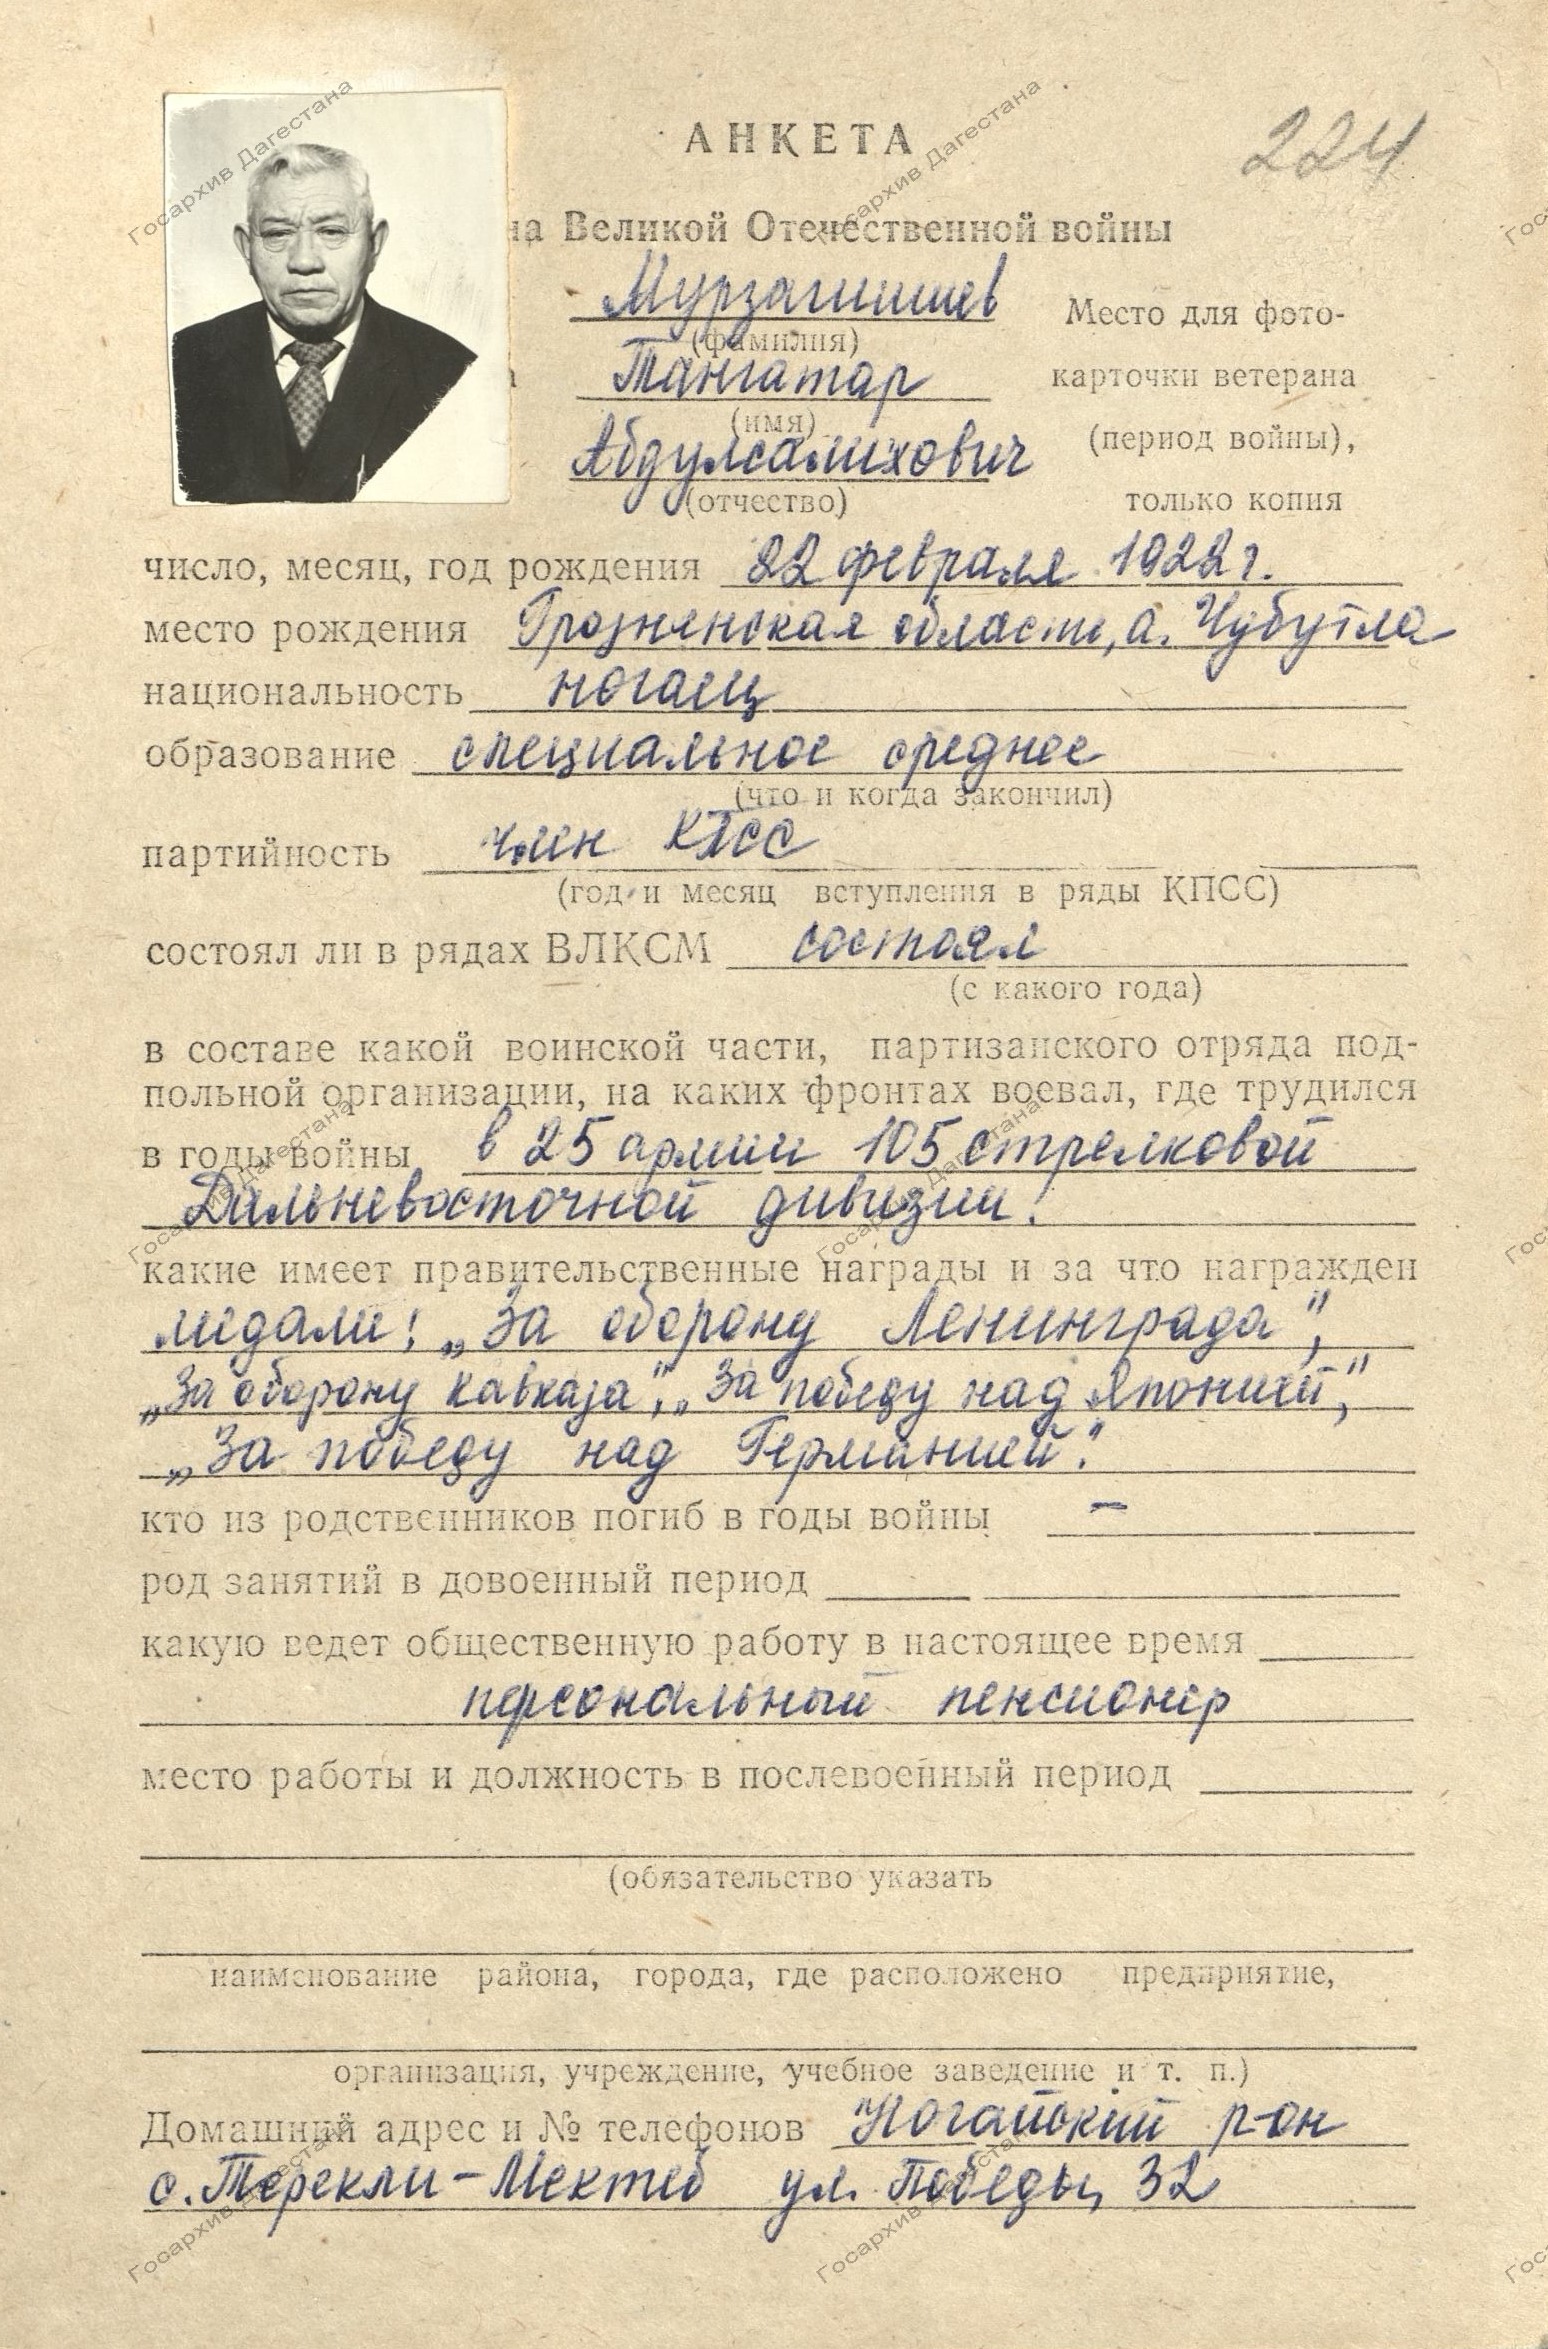 АНКЕТА
224
на Великой Отечественной войны
Мурзагишиев
(фамилия)
Место для фото-
Тангатар
карточки ветерана
(имя)
(период войны),
Абдулсалихович
(отчество)
только копия
число, месяц, год рождения 22 февраля 1922 г.
место рождения Грозненская области, а. Чубутла
национальность ногаец
образование специальное среднее
(что и когда закончил)
партийность член КПСС
(год и месяц вступления в ряды КПСС)
состоял ли в рядах ВЛКСМ состоял
(с какого года)
в составе какой воинской части, партизанского отряда под-
польной организации, на каких фронтах воевал, где трудился
в годы войны в 25 армии 105 стрелковой
Дальневосточной дивизии!
какие имеет правительственные награды и за что награжден
медали! „За оборону Ленинграда",
„За оборону Кавказа", „За победу над Японией",
„За победу над Германией".
кто из родственников погиб в годы войны –
род занятий в довоенный период
какую ведет общественную работу в настоящее время
персональный пенсионер
место работы и должность в послевоенный период
(обязательство указать
наименование района, города, где расположено предприятие,
организация, учреждение, учебное заведение и т. п.)
Домашний адрес и № телефонов Ногайский р-он
с. Терекли-Мектеб ул. Победы, 32
Госархив Дагестана